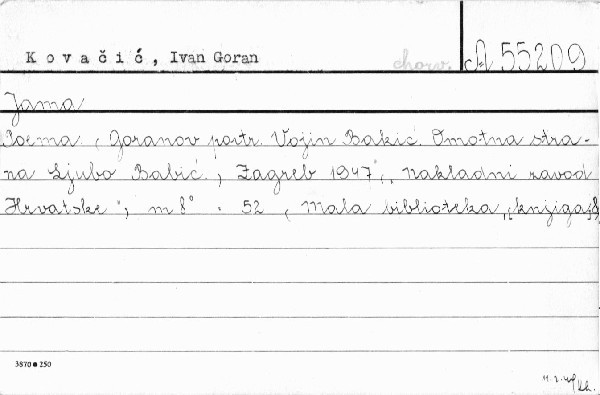 Kovačić, Ivan Goran chorv. A 55209
Jama
Poema. (Goranov portr. Vojin Bakić. Omotna stra-
na Ljubo Babić.) Zagreb 1947, „Nakladni zavod
Hrvatske"; m 8° - 52 (Mala biblioteka, knjiga 8
3870 ● 250